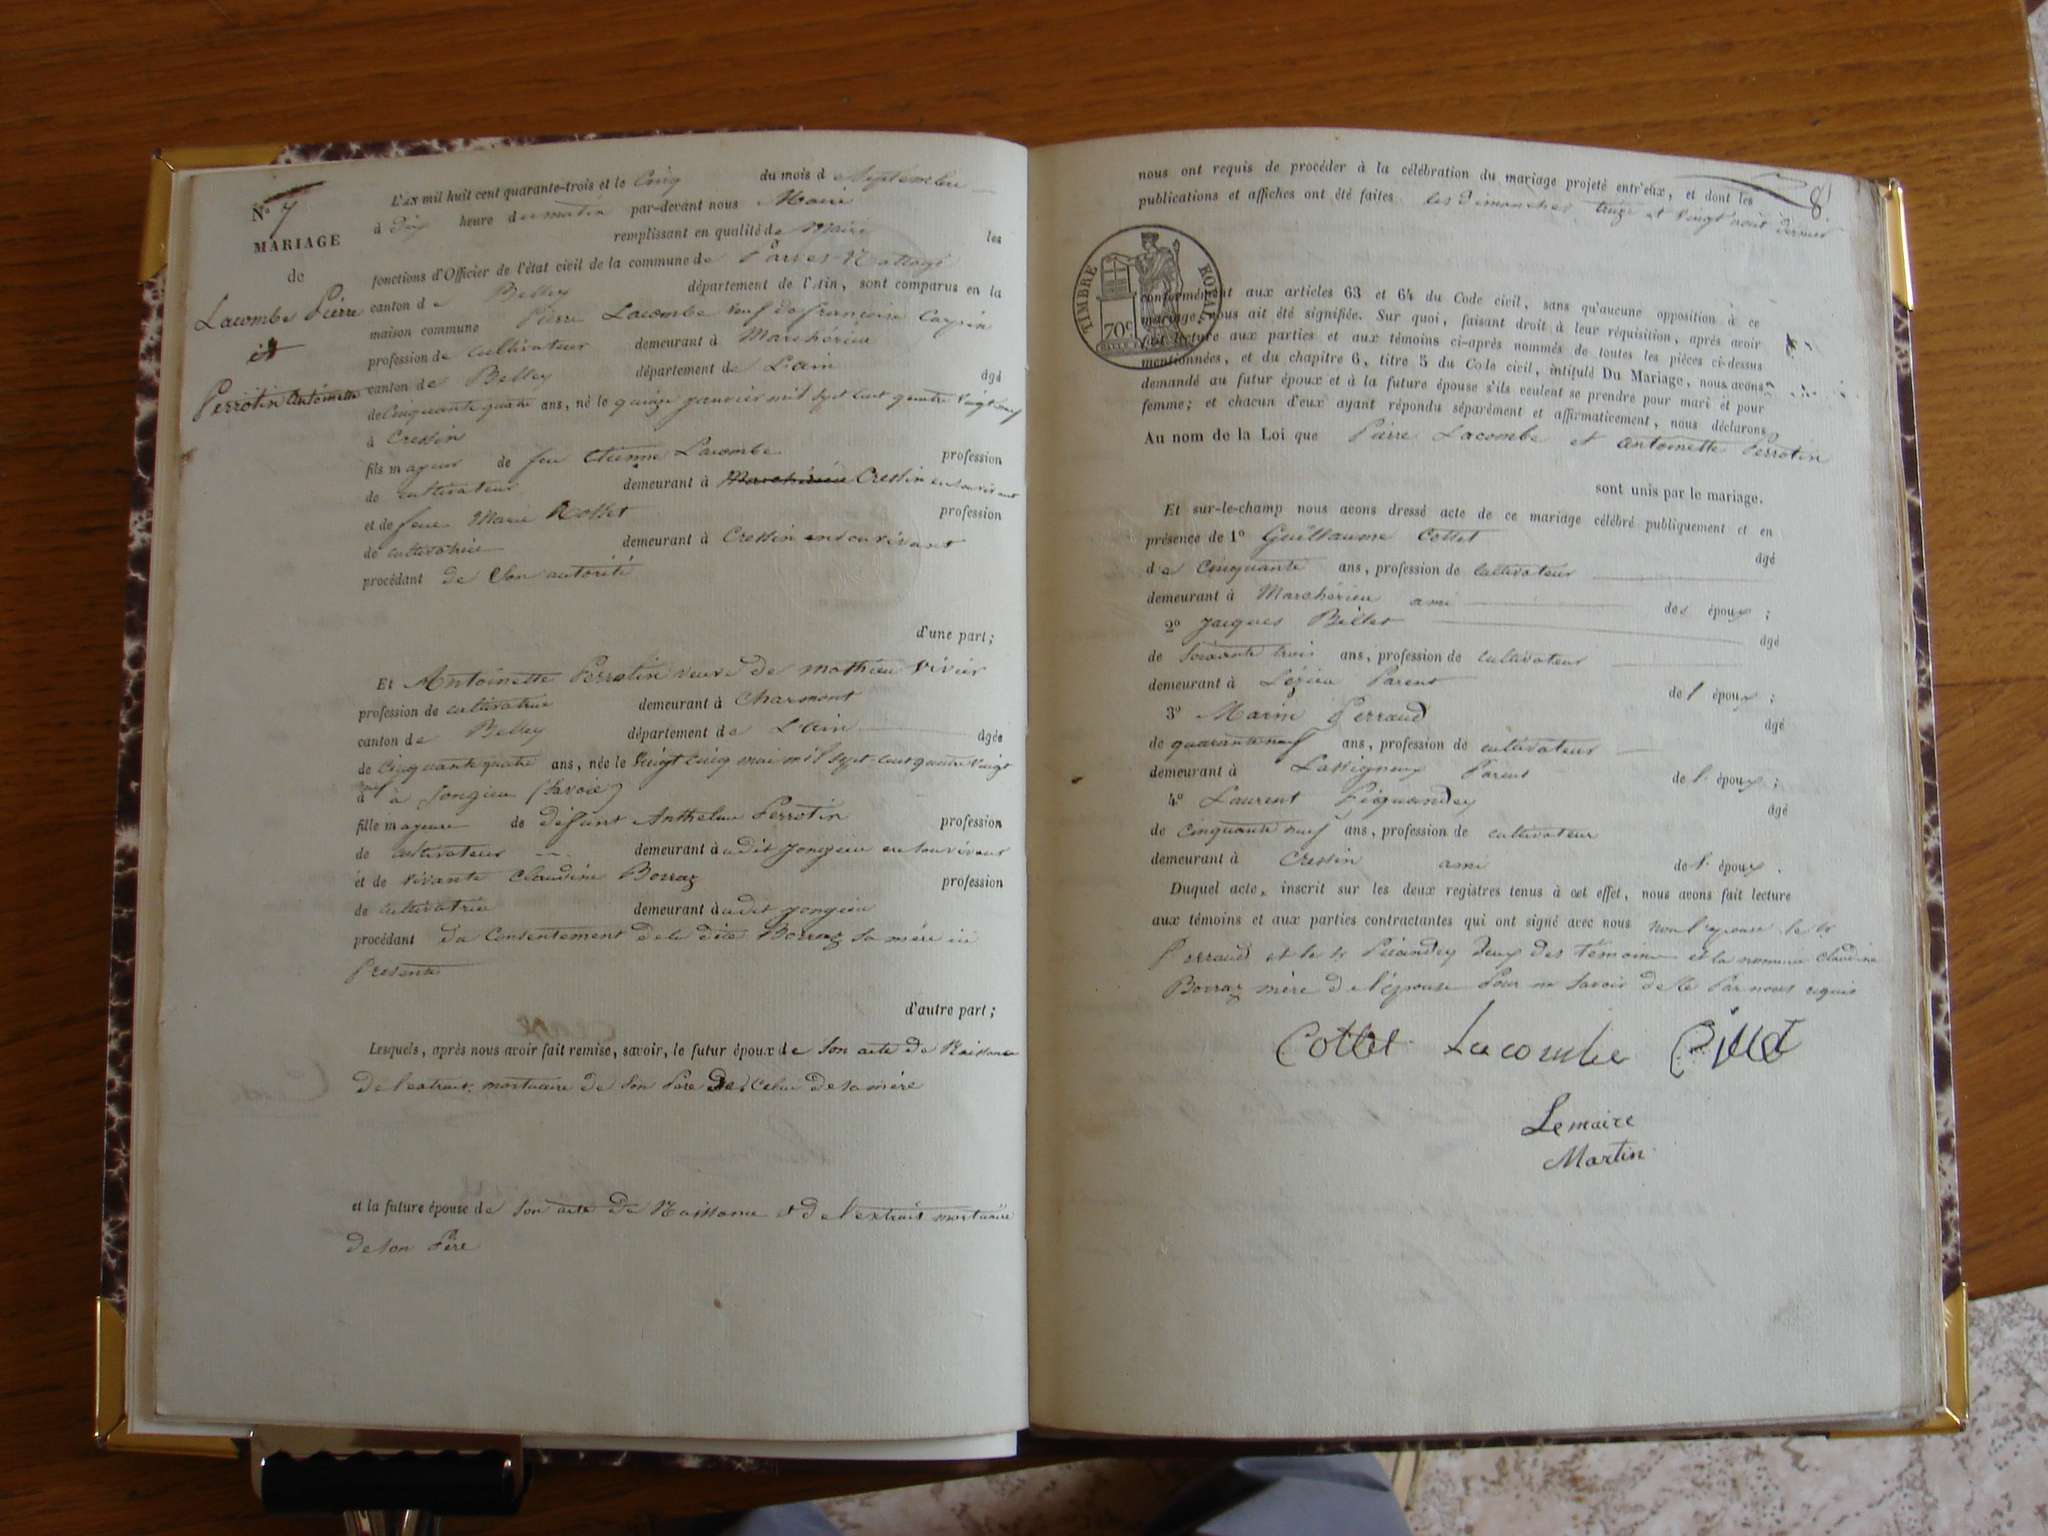 N° 7
MARIAGE
de
Lacombe Pierre
et
Perrotin Antoinette
L'AN mil huit cent quarante-trois et le Cinq du mois d Septembre
à Dix heure du matin par-devant nous Maire
remplissant en qualité de Maire les
fonctions d'Officier de l'état civil de la commune de Parves-Nattage
canton de Belley département de l'Ain, sont comparus en la
maison commune Pierre Lacombe veuf de françoise
profession de cultivateur demeurant à Marchérieu
canton de Belley département de L'ain âgé
de Cinquante quatre ans, né le quinze janvier mil sept cent quatre vingt neuf
à Cressin
fils majeur de feu Etienne Lacombe profession
de cultivateur demeurant à Marchérieu Cressin en son vivant
et de feue Marie Rosset profession
de cultivatrice demeurant à Cressin en son vivant
procédant de Son autorité
d'une part;
Et Antoinette Perrotin veuve de mathieu vivier
profession de cultivatrice demeurant à Charmont
canton de Belley département de L'ain âgée
de Cinquante quatre ans, née le Vingt Cinq mai mil sept cent quatre vingt
neuf
à à Jongieu (Savoie)
fille majeure de défunt Anthelme Perrotin profession
de cultivateur demeurant à udit jongieu en son vivant
et de vivante Claudine Borraz profession
de cultivatrice demeurant à udit jongieu
procédant du Consentement de la dite Borraz sa mère ici
Présente
d'autre part;
Lesquels, après nous avoir fait remise, savoir, le futur époux de Son acte de Naissance
de l'extrait mortuaire de Son Père de celui de sa mère
et la future épouse de Son acte de Naissance et de l'extrait mortuaire
de son Père
8
nous ont requis de procéder à la célébration du mariage projeté entr'eux, et dont les
publications et affiches ont été faites les dimanches treize et vingt août dernier
TIMBRE ROYAL
70c
conformément aux articles 63 et 64 du Code civil, sans qu'aucune opposition à ce
mariage nous ait été signifiée. Sur quoi, faisant droit à leur réquisition, après avoir
fait lecture aux parties et aux témoins ci-après nommés de toutes les pièces ci-dessus
mentionnées, et du chapitre 6, titre 5 du Code civil, intitulé Du Mariage, nous avons
demandé au futur époux et à la future épouse s'ils veulent se prendre pour mari et pour
femme; et chacun d'eux ayant répondu séparément et affirmativement, nous déclarons
Au nom de la Loi que Pierre Lacombe et Antoinette Perrotin
sont unis par le mariage.
Et sur-le-champ nous avons dressé acte de ce mariage célébré publiquement et en
présence de 1° Guillaume Cottet âgé
de Cinquante ans, profession de cultivateur
demeurant à Marchérieu ami des époux;
2° Jacques Billet âgé
de Soixante trois ans, profession de cultivateur
demeurant à Lézieu Parent de l' époux;
3° Marin Perraud âgé
de quarante neuf ans, profession de cultivateur
demeurant à Lassigneux Parent de l' époux;
4° Laurent Piquandey âgé
de Cinquante neuf ans, profession de cultivateur
demeurant à Cressin ami de l' époux.
Duquel acte, inscrit sur les deux registres tenus à cet effet, nous avons fait lecture
aux témoins et aux parties contractantes qui ont signé avec nous non l'épouse le sr
Perraud et le sr Picandey deux des témoins et la nommée Claudine
Borraz mère de l'épouse Pour ne savoir de ce Par nous requis
Cottet Lacombe Billet
Lemaire
Martin